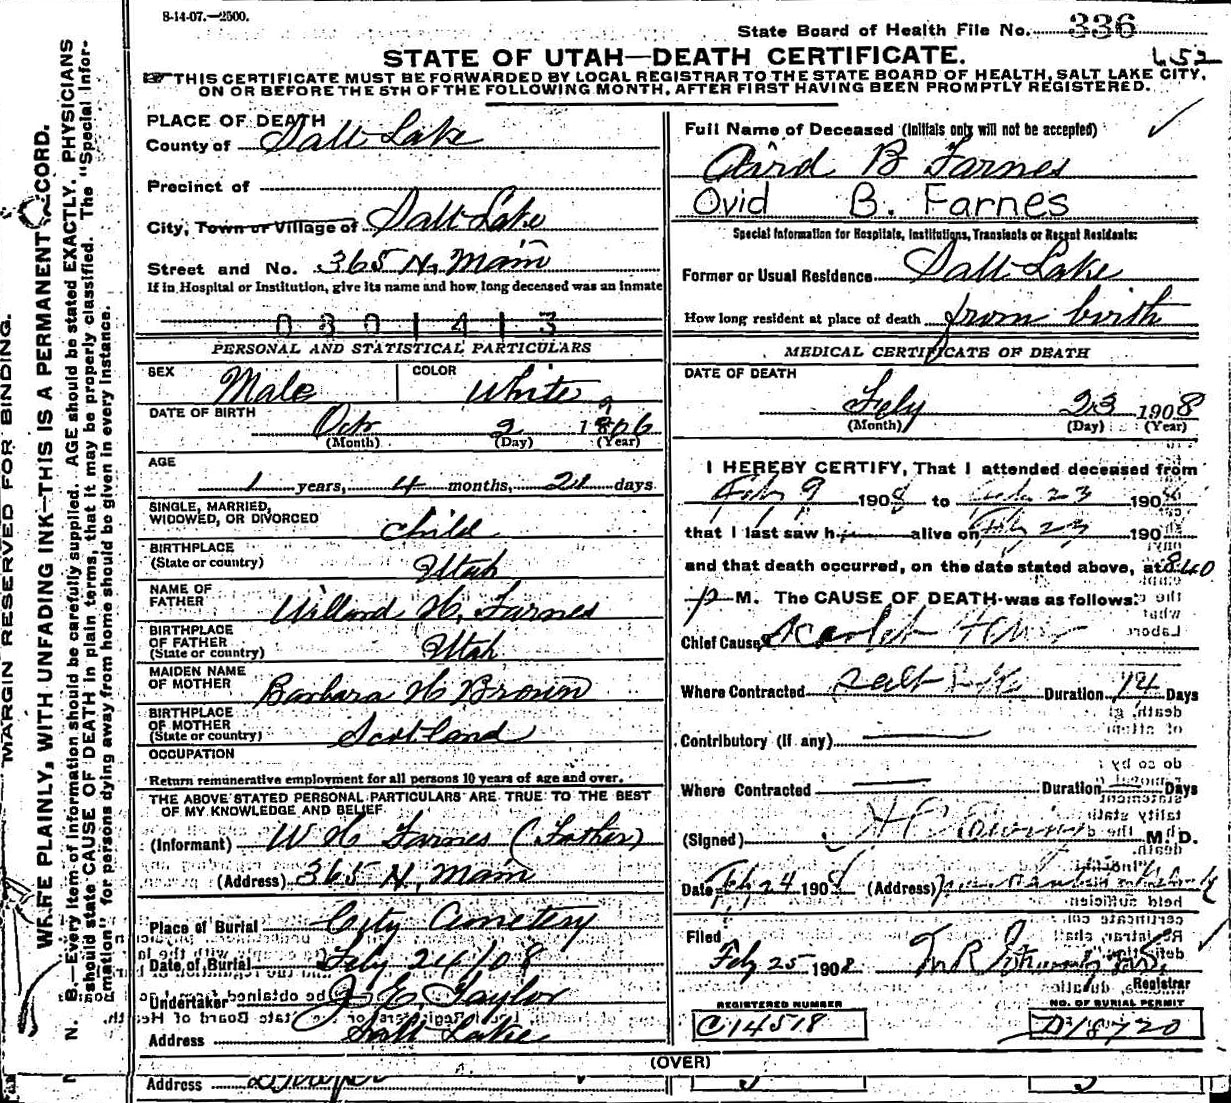 8-14-07.—2500.
State Board of Health File No. 336
652
STATE OF UTAH—DEATH CERTIFICATE.
THIS CERTIFICATE MUST BE FORWARDED BY LOCAL REGISTRAR TO THE STATE BOARD OF HEALTH, SALT LAKE CITY,
ON OR BEFORE THE 5TH OF THE FOLLOWING MONTH, AFTER FIRST HAVING BEEN PROMPTLY REGISTERED.
MARGIN RESERVED FOR BINDING.
WRITE PLAINLY, WITH UNFADING INK—THIS IS A PERMANENT RECORD.
N. B.—Every item of information should be carefully supplied. AGE should be stated EXACTLY. PHYSICIANS
should state CAUSE OF DEATH in plain terms, that it may be properly classified. The "Special Infor-
mation" for persons dying away from home should be given in every instance.
PLACE OF DEATH
County of Salt Lake
Precinct of
City, Town or Village of Salt Lake
Street and No. 365 N. Main
If in Hospital or Institution, give its name and how long deceased was an inmate
0301413
PERSONAL AND STATISTICAL PARTICULARS
SEX Male COLOR White
DATE OF BIRTH Oct 2 1906
(Month) (Day) (Year)
AGE
1 years, 4 months, 21 days
SINGLE, MARRIED,
WIDOWED, OR DIVORCED child
BIRTHPLACE
(State or country) Utah
NAME OF
FATHER Willard H. Farnes
BIRTHPLACE
OF FATHER
(State or country) Utah
MAIDEN NAME
OF MOTHER Barbara H Brown
BIRTHPLACE
OF MOTHER
(State or country) Scotland
OCCUPATION
Return remunerative employment for all persons 10 years of age and over.
THE ABOVE STATED PERSONAL PARTICULARS ARE TRUE TO THE BEST
OF MY KNOWLEDGE AND BELIEF
(Informant) W H Farnes (Father)
(Address) 365 N. Main
Place of Burial City Cemetery
Date of Burial Feby 24/08
Undertaker J E Taylor
Address Salt Lake
Full Name of Deceased (Initials only will not be accepted)
Ovid B Farnes
Ovid B. Farnes
Special Information for Hospitals, Institutions, Transients or Recent Residents:
Former or Usual Residence Salt Lake
How long resident at place of death from birth
MEDICAL CERTIFICATE OF DEATH
DATE OF DEATH
Feby 23 1908
(Month) (Day) (Year)
I HEREBY CERTIFY, That I attended deceased from
Feby 9 1908 to Feby 23 1908
that I last saw him alive on Feby 23 190
and that death occurred, on the date stated above, at 8.40
p M. The CAUSE OF DEATH was as follows:
Chief Cause Scarlet Fever
Where Contracted Salt Lake Duration 14 Days
Contributory (if any)
Where Contracted Duration Days
(Signed) M. D.
Date Feby 24 1908 (Address)
Filed
Feby 25 1908
Registrar
REGISTERED NUMBER
C14518
NO. OF BURIAL PERMIT
D18720
(OVER)
Address Draper